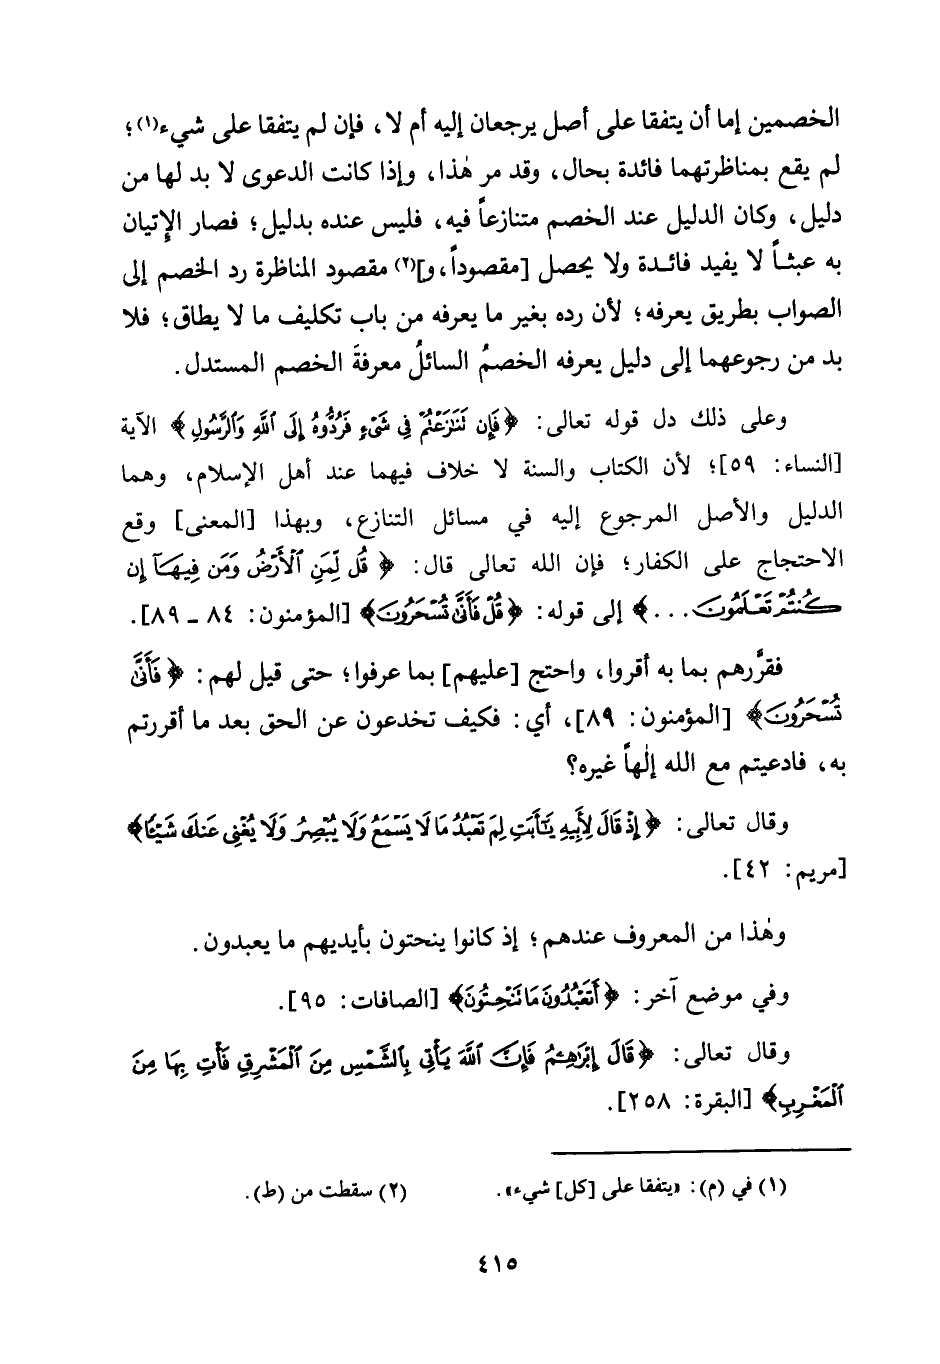 الخصمين إما أن يتفقا على أصل يرجعان إليه أم لا، فإن لم يتفقا على شيء(١)؛
لم يقع بمناظرتهما فائدة بحال، وقد مر هٰذا، وإذا كانت الدعوى لا بد لها من
دليل، وكان الدليل عند الخصم متنازعاً فيه، فليس عنده بدليل؛ فصار الإتيان
به عبثاً لا يفيد فائدة ولا يحصل [مقصوداً، و](٢) مقصود المناظرة رد الخصم إلى
الصواب بطريق يعرفه؛ لأن رده بغير ما يعرفه من باب تكليف ما لا يطاق؛ فلا
بد من رجوعهما إلى دليل يعرفه الخصمُ السائلُ معرفةَ الخصم المستدل.
وعلى ذلك دل قوله تعالى: ﴿فَإِن تَنَازَعْتُمْ فِي شَيْءٍ فَرُدُّوهُ إِلَى ٱللَّهِ وَٱلرَّسُولِ﴾ الآية
[النساء: ٥٩]؛ لأن الكتاب والسنة لا خلاف فيهما عند أهل الإسلام، وهما
الدليل والأصل المرجوع إليه في مسائل التنازع، وبهذا [المعنى] وقع
الاحتجاج على الكفار؛ فإن الله تعالى قال: ﴿قُل لِّمَنِ ٱلْأَرْضُ وَمَن فِيهَآ إِن
كُنتُمْ تَعْلَمُونَ...﴾ إلى قوله: ﴿قُلْ فَأَنَّىٰ تُسْحَرُونَ﴾ [المؤمنون: ٨٤ ـ ٨٩].
فقرَّرهم بما به أقروا، واحتج [عليهم] بما عرفوا؛ حتى قيل لهم: ﴿فَأَنَّىٰ
تُسْحَرُونَ﴾ [المؤمنون: ٨٩]، أي: فكيف تخدعون عن الحق بعد ما أقررتم
به، فادعيتم مع الله إلٰهاً غيره؟
وقال تعالى: ﴿إِذْ قَالَ لِأَبِيهِ يَٰٓأَبَتِ لِمَ تَعْبُدُ مَا لَا يَسْمَعُ وَلَا يُبْصِرُ وَلَا يُغْنِي عَنكَ شَيْـًٔا﴾
[مريم: ٤٢].
وهٰذا من المعروف عندهم؛ إذ كانوا ينحتون بأيديهم ما يعبدون.
وفي موضع آخر: ﴿أَتَعْبُدُونَ مَا تَنْحِتُونَ﴾ [الصافات: ٩٥].
وقال تعالى: ﴿قَالَ إِبْرَٰهِـۧمُ فَإِنَّ ٱللَّهَ يَأْتِي بِٱلشَّمْسِ مِنَ ٱلْمَشْرِقِ فَأْتِ بِهَا مِنَ
ٱلْمَغْرِبِ﴾ [البقرة: ٢٥٨].
(١) في (م): «يتفقا على [كل] شيء». (٢) سقطت من (ط).
٤١٥